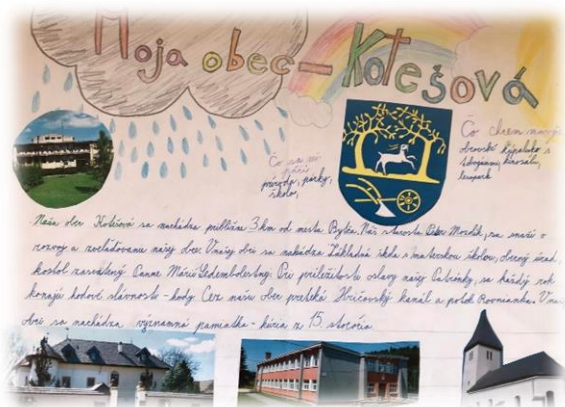 Moja obec – Kotešová
Čo sa mi
páči
príroda, parky,
škola,
Čo chcem
obrovské kúpalisko s
tobogánmi, kinosálu,
lezopark
Naša obec Kotešová sa nachádza približne 3 km od mesta Bytča. Náš starosta Peter Mozolík, sa snaží o
rozvoj a zveľaďovanie našej obce. V našej obci sa nachádza Základná škola s materskou školou, obecný úrad,
kostol zasvätený Panne Márii Sedembolestnej. Pri príležitosti oslavy našej Patrónky, sa každý rok
konajú hodové slávnosti - hody. Cez našu obec preteká Hričovský kanál a potok Rovnianka. V našej
obci sa nachádza významná pamiatka - kúria z 15. storočia